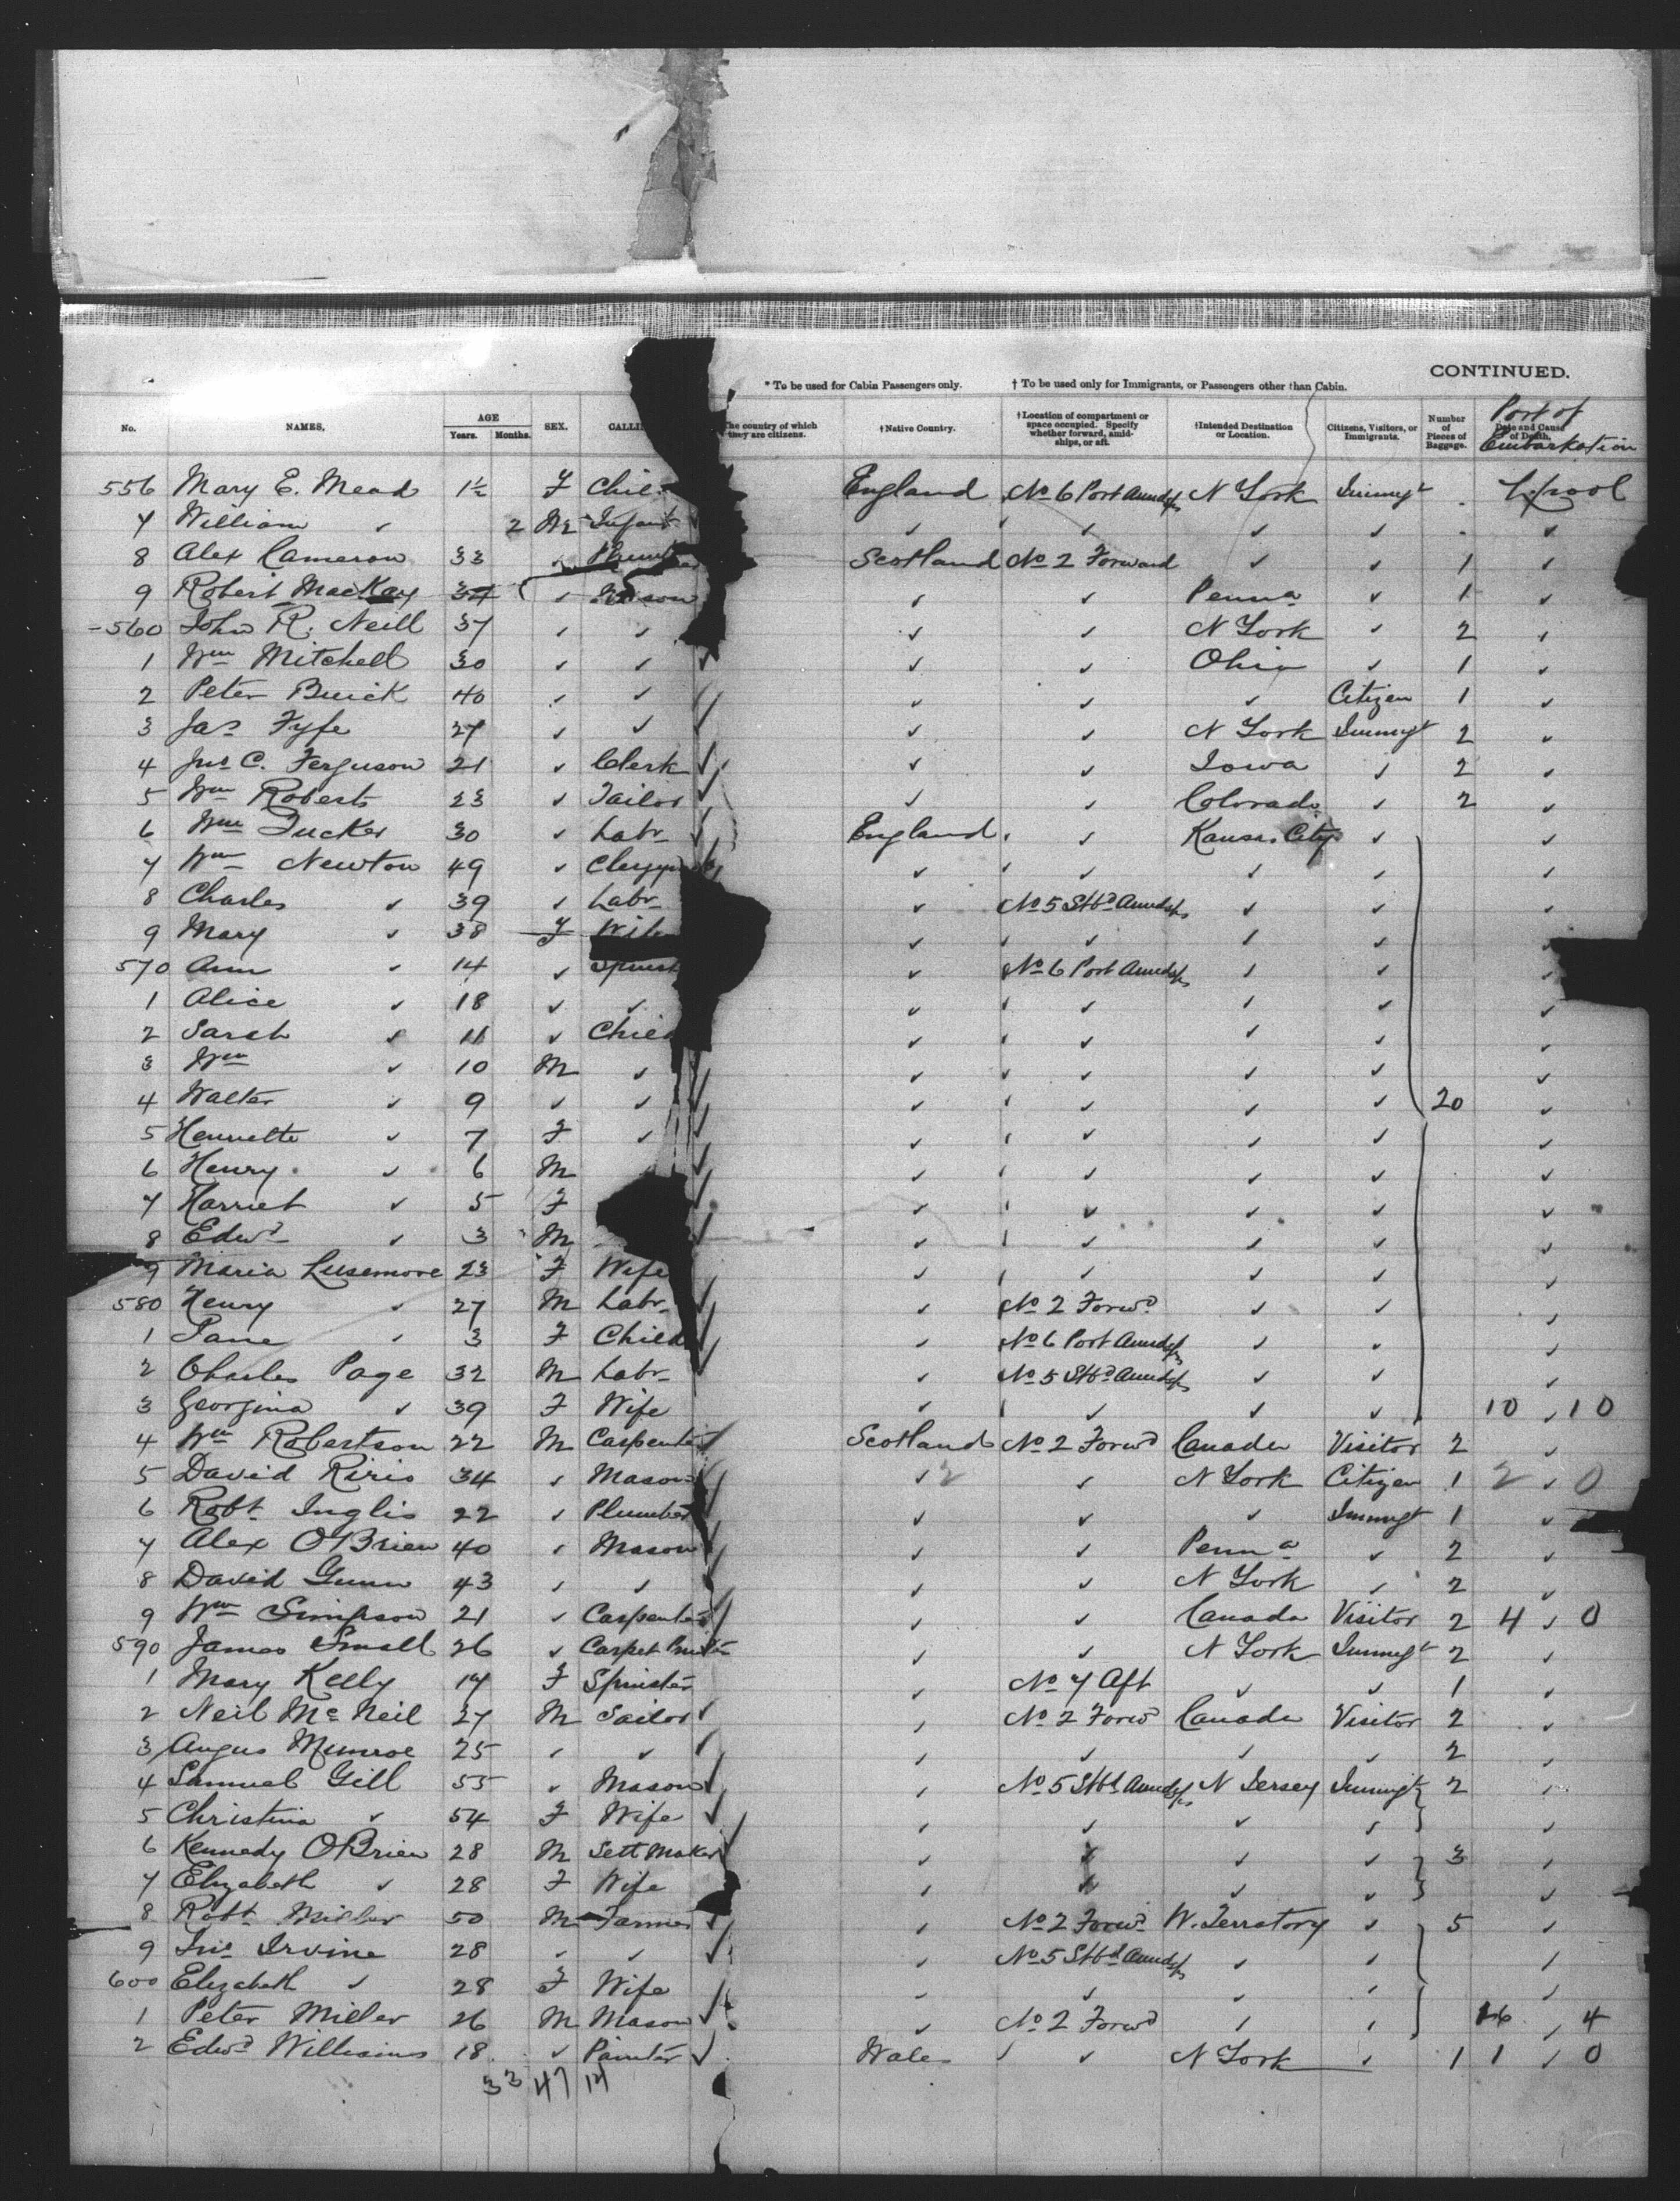 CONTINUED.
* To be used for Cabin Passengers only. † To be used only for Immigrants, or Passengers other than Cabin.
No. NAMES. AGE Years. Months. SEX. CALLI The country of which they are citizens. †Native Country. †Location of compartment or space occupied. Specify whether forward, amidships, or aft. †Intended Destination or Location. Citizens, Visitors, or Immigrants. Number of Pieces of Baggage. Date and Cause of Death. Port of Embarkation
556 Mary E. Mead 1½ F Chil England No 6 Port Amidsps N York Immgt L'pool
7 William ✓ 2 M Infant ✓ ✓ ✓ ✓ ✓
8 Alex Cameron 33 ✓ Scotland No 2 Forward ✓ ✓ 1 ✓
9 Robert MacKay 34 ✓ Mason ✓ ✓ Penna ✓ 1 ✓
560 John R. Neill 37 ✓ ✓ ✓ ✓ N York ✓ 2 ✓
1 Wm Mitchell 30 ✓ ✓ ✓ ✓ Ohio ✓ 1 ✓
2 Peter Buick 40 ✓ ✓ ✓ ✓ ✓ Citizen 1 ✓
3 Jas Fyfe 27 ✓ ✓ ✓ ✓ N York Immgt 2 ✓
4 Jno C. Ferguson 21 ✓ Clerk ✓ ✓ Iowa ✓ 2 ✓
5 Wm Roberts 23 ✓ Tailor ✓ ✓ Colorado ✓ 2 ✓
6 Wm Tucker 30 ✓ Labr England ✓ Kansas City ✓ ✓
7 Wm Newton 49 ✓ Clergym ✓ ✓ ✓ ✓ ✓
8 Charles ✓ 39 ✓ Labr ✓ No 5 Stbd Amidsps ✓ ✓ ✓
9 Mary ✓ 38 F Wife ✓ ✓ ✓ ✓ ✓
570 Ann ✓ 14 ✓ Spinst ✓ No 6 Port Amidsps ✓ ✓ ✓
1 Alice ✓ 18 ✓ ✓ ✓ ✓ ✓ ✓ ✓
2 Sarah ✓ 11 ✓ Child ✓ ✓ ✓ ✓ ✓
3 Wm ✓ 10 M ✓ ✓ ✓ ✓ ✓ ✓
4 Walter ✓ 9 ✓ ✓ ✓ ✓ ✓ ✓ 20 ✓
5 Henriette ✓ 7 F ✓ ✓ ✓ ✓ ✓ ✓
6 Henry ✓ 6 M ✓ ✓ ✓ ✓ ✓
7 Harriet ✓ 5 F ✓ ✓ ✓ ✓ ✓
8 Edwd ✓ 3 M ✓ ✓ ✓ ✓ ✓
9 Maria Lusemore 23 F Wife ✓ ✓ ✓ ✓ ✓
580 Henry ✓ 27 M Labr ✓ No 2 Forwd ✓ ✓ ✓
1 Jane ✓ 3 F Child ✓ No 6 Port Amidsps ✓ ✓ ✓
2 Charles Page 32 M Labr ✓ No 5 Stbd Amidsps ✓ ✓ ✓
3 Georgina ✓ 39 F Wife ✓ ✓ ✓ ✓ 10 ✓ 10
4 Wm Robertson 22 M Carpenter Scotland No 2 Forwd Canada Visitor 2 ✓
5 David 34 ✓ Mason ✓ 2 ✓ N York Citizen 1 2 ✓ 0
6 Robt Inglis 22 ✓ Plumber ✓ ✓ ✓ Immgt 1 ✓
7 Alex O'Brien 40 ✓ Mason ✓ ✓ Penna ✓ 2 ✓
8 David Gunn 43 ✓ ✓ ✓ ✓ N York ✓ 2 ✓
9 Wm Simpson 21 ✓ Carpenter ✓ ✓ Canada Visitor 2 4 ✓ 0
590 James Small 26 ✓ Carpet ✓ ✓ N York Immgt 2 ✓
1 Mary Kelly 17 F Spinster ✓ No 7 Aft ✓ ✓ 1 ✓
2 Neil McNeil 27 M Sailor ✓ No 2 Forwd Canada Visitor 2 ✓
3 Angus Munroe 25 ✓ ✓ ✓ ✓ ✓ ✓ 2 ✓
4 Samuel Gill 55 ✓ Mason ✓ No 5 Stbd Amidsps N Jersey Immigt 2 ✓
5 Christina ✓ 54 F Wife ✓ ✓ ✓ ✓ ✓
6 Kennedy O'Brien 28 M Sett Maker ✓ ✓ ✓ ✓ 3 ✓
7 Elizabeth ✓ 28 F Wife ✓ ✓ ✓ ✓ ✓
8 Robt Miller 50 M Farmer ✓ No 2 Forwd W. Terratory ✓ 5 ✓
9 Jno Irvine 28 ✓ ✓ ✓ No 5 Stbd Amidsps ✓ ✓ ✓
600 Elizabeth ✓ 28 F Wife ✓ ✓ ✓ ✓ ✓
1 Peter Miller 26 M Mason ✓ No 2 Forwd ✓ ✓ 16 ✓ 4
2 Edwd Williams 18 ✓ Painter Wales ✓ N York ✓ 1 1 ✓ 0
33 47 14